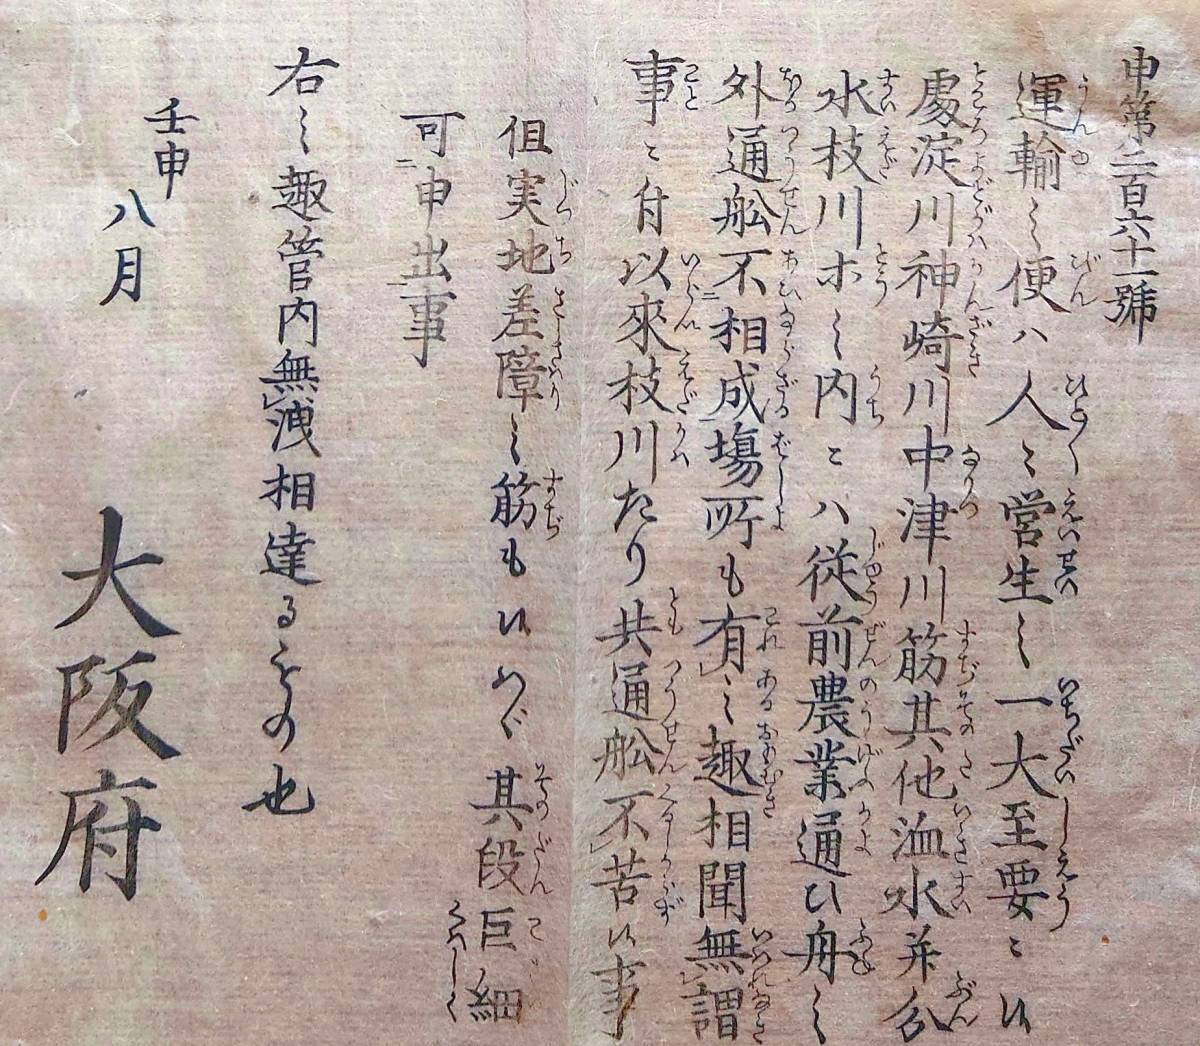 申第二百六十一號
運輸之便ハ人々営生之一大至要ニ候
處淀川神崎川中津川筋其他洫水并分
水枝川ホ之内ニハ従前農業通ひ舟之
外通舩不相成場所も有之趣相聞無謂
事ニ付以來枝川たり共通舩不苦候事
但実地差障之筋も候ハヾ其段巨細
可申出事
右之趣管内無洩相達るもの也
壬申
八月
大阪府